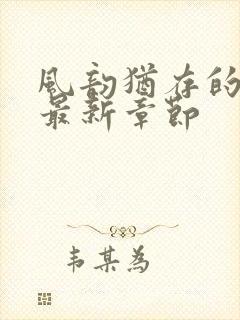 風韵猶存的
最新章節
韦某為